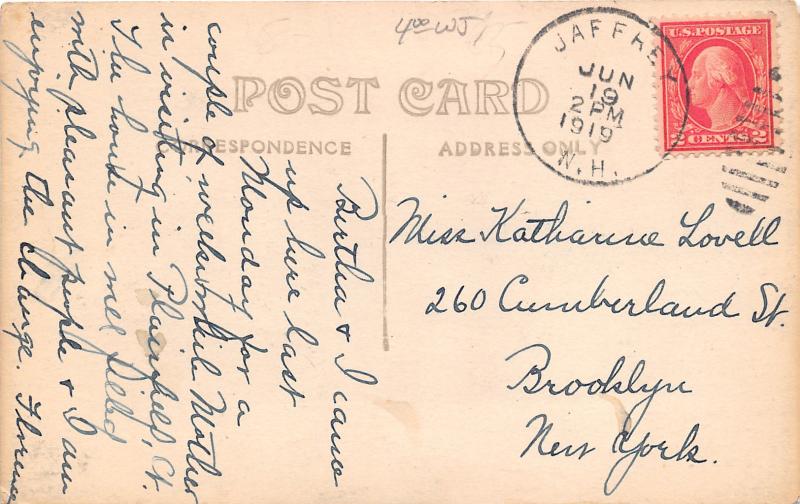 4.00 WJ
POST CARD
CORRESPONDENCE
ADDRESS ONLY
JAFFREY
JUN
19
2 PM
1919
N.H.
U.S. POSTAGE
2 CENTS 2
Miss Katharine Lovell
260 Cumberland St.
Brooklyn
New York.
Birtha & I came
up here last
Monday for a
couple of weeks while Mother
is visiting in Plainfield, Ct.
The house is well filled
with pleasant people & I am
enjoying the change. Florence